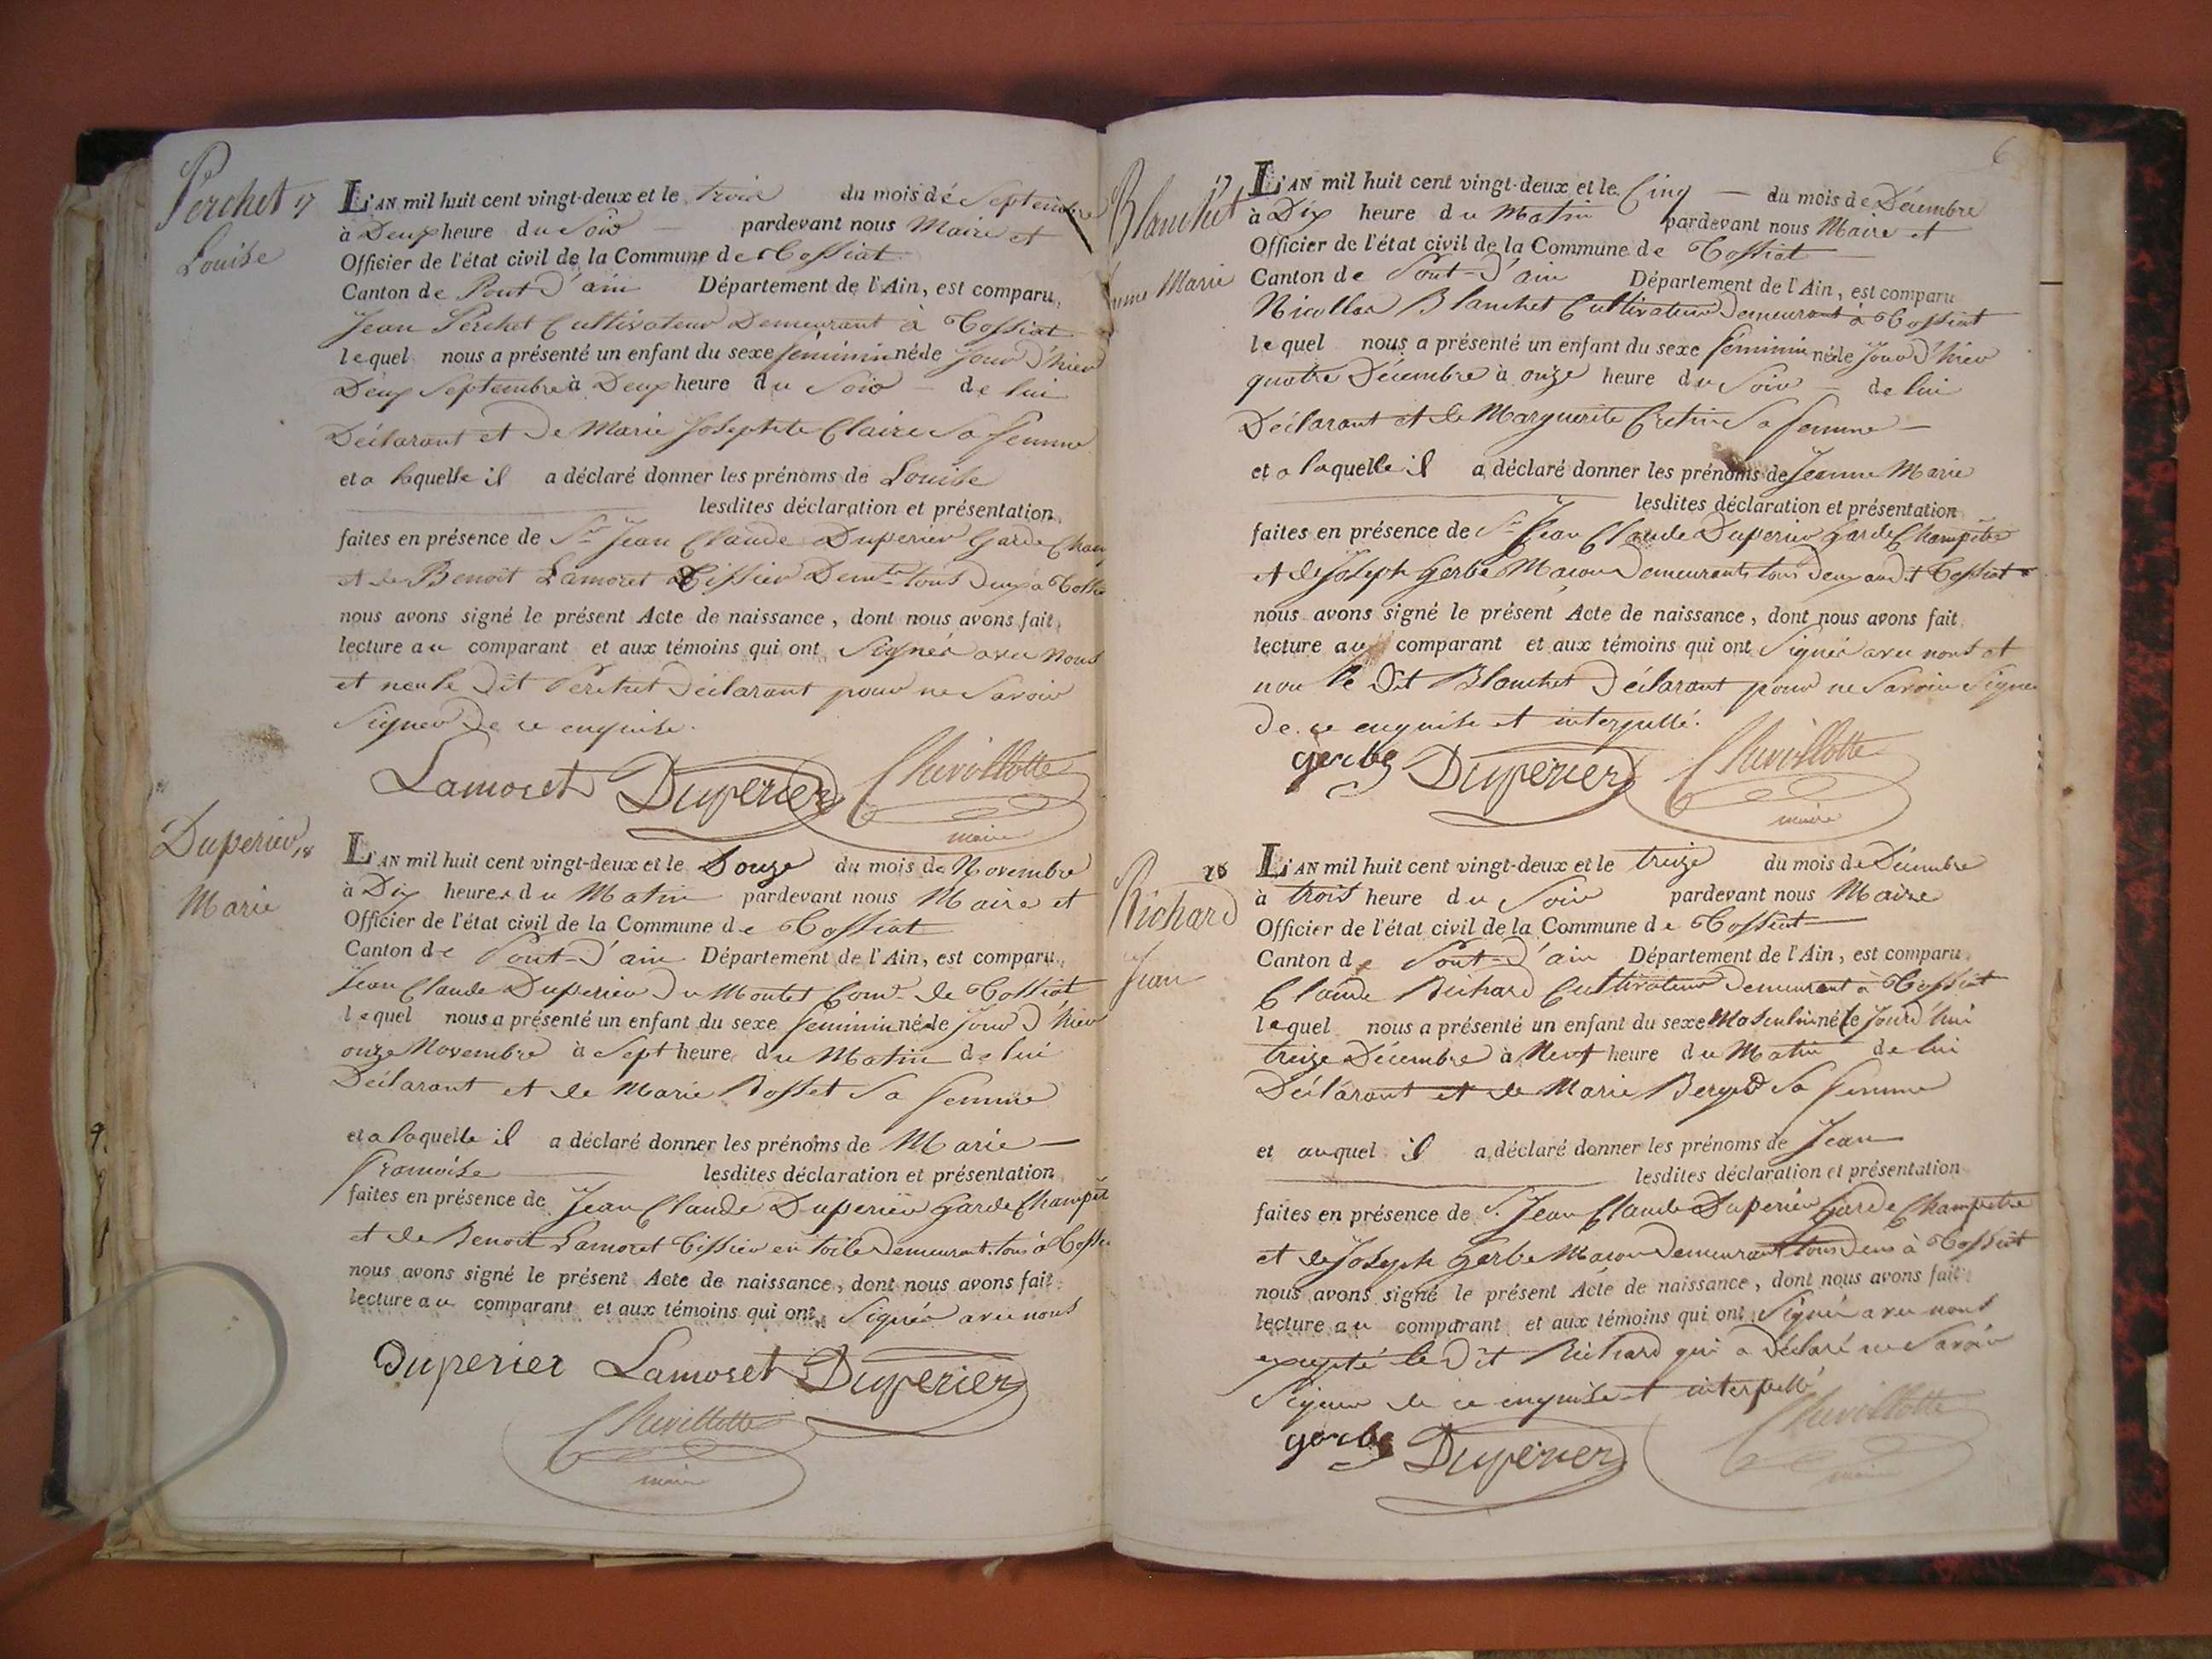 Perchet 17
Louise
L'AN mil huit cent vingt-deux et le trois du mois de Septembre
à Deux heure du Soir — pardevant nous Maire et
Officier de l'état civil de la Commune de Tossiat
Canton de Pont d'ain Département de l'Ain, est comparu
Jean Perchet Cultivateur Demeurant à Tossiat
lequel nous a présenté un enfant du sexe féminin née le jour d'hier
Deux Septembre à Deux heure du Soir — de lui
Déclarant et de Marie Josephte Claire Sa femme
et a laquelle il a déclaré donner les prénoms de Louise
lesdites déclaration et présentation
faites en présence de Sr Jean Claude Duperier Garde Cham
et de Benoit Lamoret Tissier Demt tous deux à Tossia
nous avons signé le présent Acte de naissance, dont nous avons fait
lecture au comparant et aux témoins qui ont Signés avec nous
et non le Dit Perchet Déclarant pour ne Savoir
Signer De ce enquise.
Lamoret Duperier Chevillotte
maire
Duperier 18
Marie
L'AN mil huit cent vingt-deux et le Douze du mois de Novembre
à Dix heures du Matin pardevant nous Maire et
Officier de l'état civil de la Commune de Tossiat
Canton de Pont-d'ain Département de l'Ain, est comparu
Jean Claude Duperier Du Montet Comne de Tossiat
lequel nous a présenté un enfant du sexe féminin née le jour d'hier
onze Novembre à Sept heure du Matin de lui
Déclarant et de Marie Rosset Sa femme
et a laquelle il a déclaré donner les prénoms de Marie —
francoise lesdites déclaration et présentation
faites en présence de Jean Claude Duperier garde Champêt
et de Benoit Lamoret Tissier en toile Demeurant tous à Tossia
nous avons signé le présent Acte de naissance, dont nous avons fait
lecture au comparant et aux témoins qui ont Signés avec nous
Duperier Lamoret Duperier
Chevillotte
maire
6
Blanchet 19
Jeanne Marie
L'AN mil huit cent vingt-deux et le Cinq — du mois de Décembre
à Dix heure du Matin pardevant nous Maire et
Officier de l'état civil de la Commune de Tossiat
Canton de Pont-d'ain Département de l'Ain, est comparu
Nicollas Blanchet Cultivateur Demeurant à Tossiat
lequel nous a présenté un enfant du sexe féminin née le jour d'hier
quatre Décembre à onze heure du Soir — de lui
Déclarant et de Marguerite Cretin Sa femme —
et a laquelle il a déclaré donner les prénoms de Jeanne Marie
lesdites déclaration et présentation
faites en présence de Sr Jean Claude Duperier garde Champêtre
et de Joseph Gerbe Macon Demeurants tous deux au dit Tossiat
nous avons signé le présent Acte de naissance, dont nous avons fait
lecture au comparant et aux témoins qui ont Signés avec nous et
non le Dit Blanchet Déclarant pour ne Savoir Signer
De ce enquise et interpellé.
gerbe Duperier Chevillotte
maire
Richard 20
Jean
L'AN mil huit cent vingt-deux et le treize du mois de Décembre
à trois heure du Soir pardevant nous Maire
Officier de l'état civil de la Commune de Tossiat
Canton de Pont-d'ain Département de l'Ain, est comparu
Claude Richard Cultivateur Demeurant à Tossiat
lequel nous a présenté un enfant du sexe Masculin né le jourd'hui
treize Décembre à Neuf heure du Matin de lui
Déclarant et de Marie Berger Sa femme
et auquel il a déclaré donner les prénoms de Jean
lesdites déclaration et présentation
faites en présence de S. Jean Claude Duperier Garde Champetre
et de Joseph Gerbe Macon Demeurant tous deux à Tossiat
nous avons signé le présent Acte de naissance, dont nous avons fait
lecture au comparant et aux témoins qui ont Signés avec nous
excepté le Dit Richard qui a Déclaré ne Savoir
Signer de ce enquise et interpellé
gerbe Duperier Chevillotte
maire